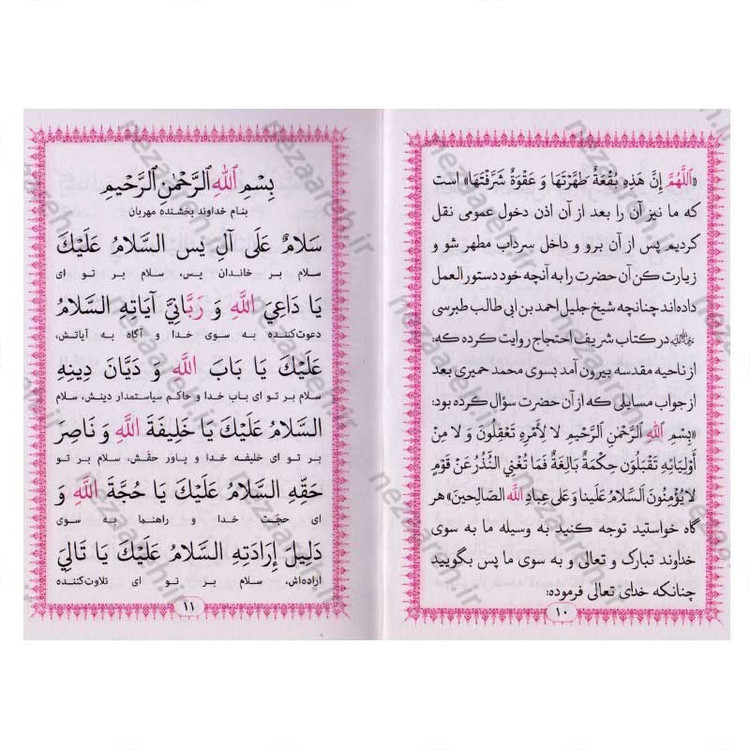 «اَللَّهُمَّ إِنَّ هَذِهِ بُقْعَةٌ طَهَّرْتَهَا وَ عَقْوَةٌ شَرَّفْتَهَا» است
که ما نیز آن را بعد از آن اذن دخول عمومی نقل
کردیم پس از آن برو و داخل سرداب مطهر شو و
زیارت کن آن حضرت را به آنچه خود دستور العمل
داده‌اند چنانچه شیخ جلیل احمد بن ابی طالب طبرسی
در کتاب شریف احتجاج روایت کرده که:
از ناحیه مقدسه بیرون آمد بسوی محمد حمیری بعد
از جواب مسایلی که از آن حضرت سؤال کرده بود:
«بِسْمِ اللهِ الرَّحْمٰنِ الرَّحِيْمِ لا لِأَمْرِهِ تَعْقِلُونَ وَ لا مِنْ
أَوْلِيَائِهِ تَقْبَلُونَ حِكْمَةٌ بَالِغَةٌ فَمَا تُغْنِي النُّذُرُ عَنْ قَوْمٍ
لا يُؤْمِنُونَ اَلسَّلامُ عَلَيْنا وَ عَلى عِبادِ اللهِ الصَّالِحينَ» هر
گاه خواستید توجه کنید به وسیله ما به سوی
خداوند تبارک و تعالی و به سوی ما پس بگویید
چنانکه خدای تعالی فرموده:
۱۰
بِسْمِ اللهِ الرَّحْمٰنِ الرَّحْيْمِ
بنام خداوند بخشنده مهربان
سَلامٌ عَلَى آلِ يس السَّلامُ عَلَيْكَ
سلام بر خاندان یس، سلام بر تو ای
يَا دَاعِيَ اللهِ وَ رَبَّانِيَّ آيَاتِهِ السَّلامُ
دعوت‌کننده به سوی خدا و آگاه به آیاتش،
عَلَيْكَ يَا بَابَ اللهِ وَ دَيَّانَ دِينِهِ
سلام بر تو ای باب خدا و حاکم سیاستمدار دینش، سلام
السَّلامُ عَلَيْكَ يَا خَلِيفَةَ اللهِ وَ نَاصِرَ
بر تو ای خلیفه خدا و یاور حقّش، سلام بر تو
حَقِّهِ السَّلامُ عَلَيْكَ يَا حُجَّةَ اللهِ وَ
ای حجّت خدا و راهنما به سوی
دَلِيلَ إِرَادَتِهِ السَّلامُ عَلَيْكَ يَا تَالِيَ
اراده‌اش، سلام بر تو ای تلاوت‌کننده
۱۱
nezaareh.ir